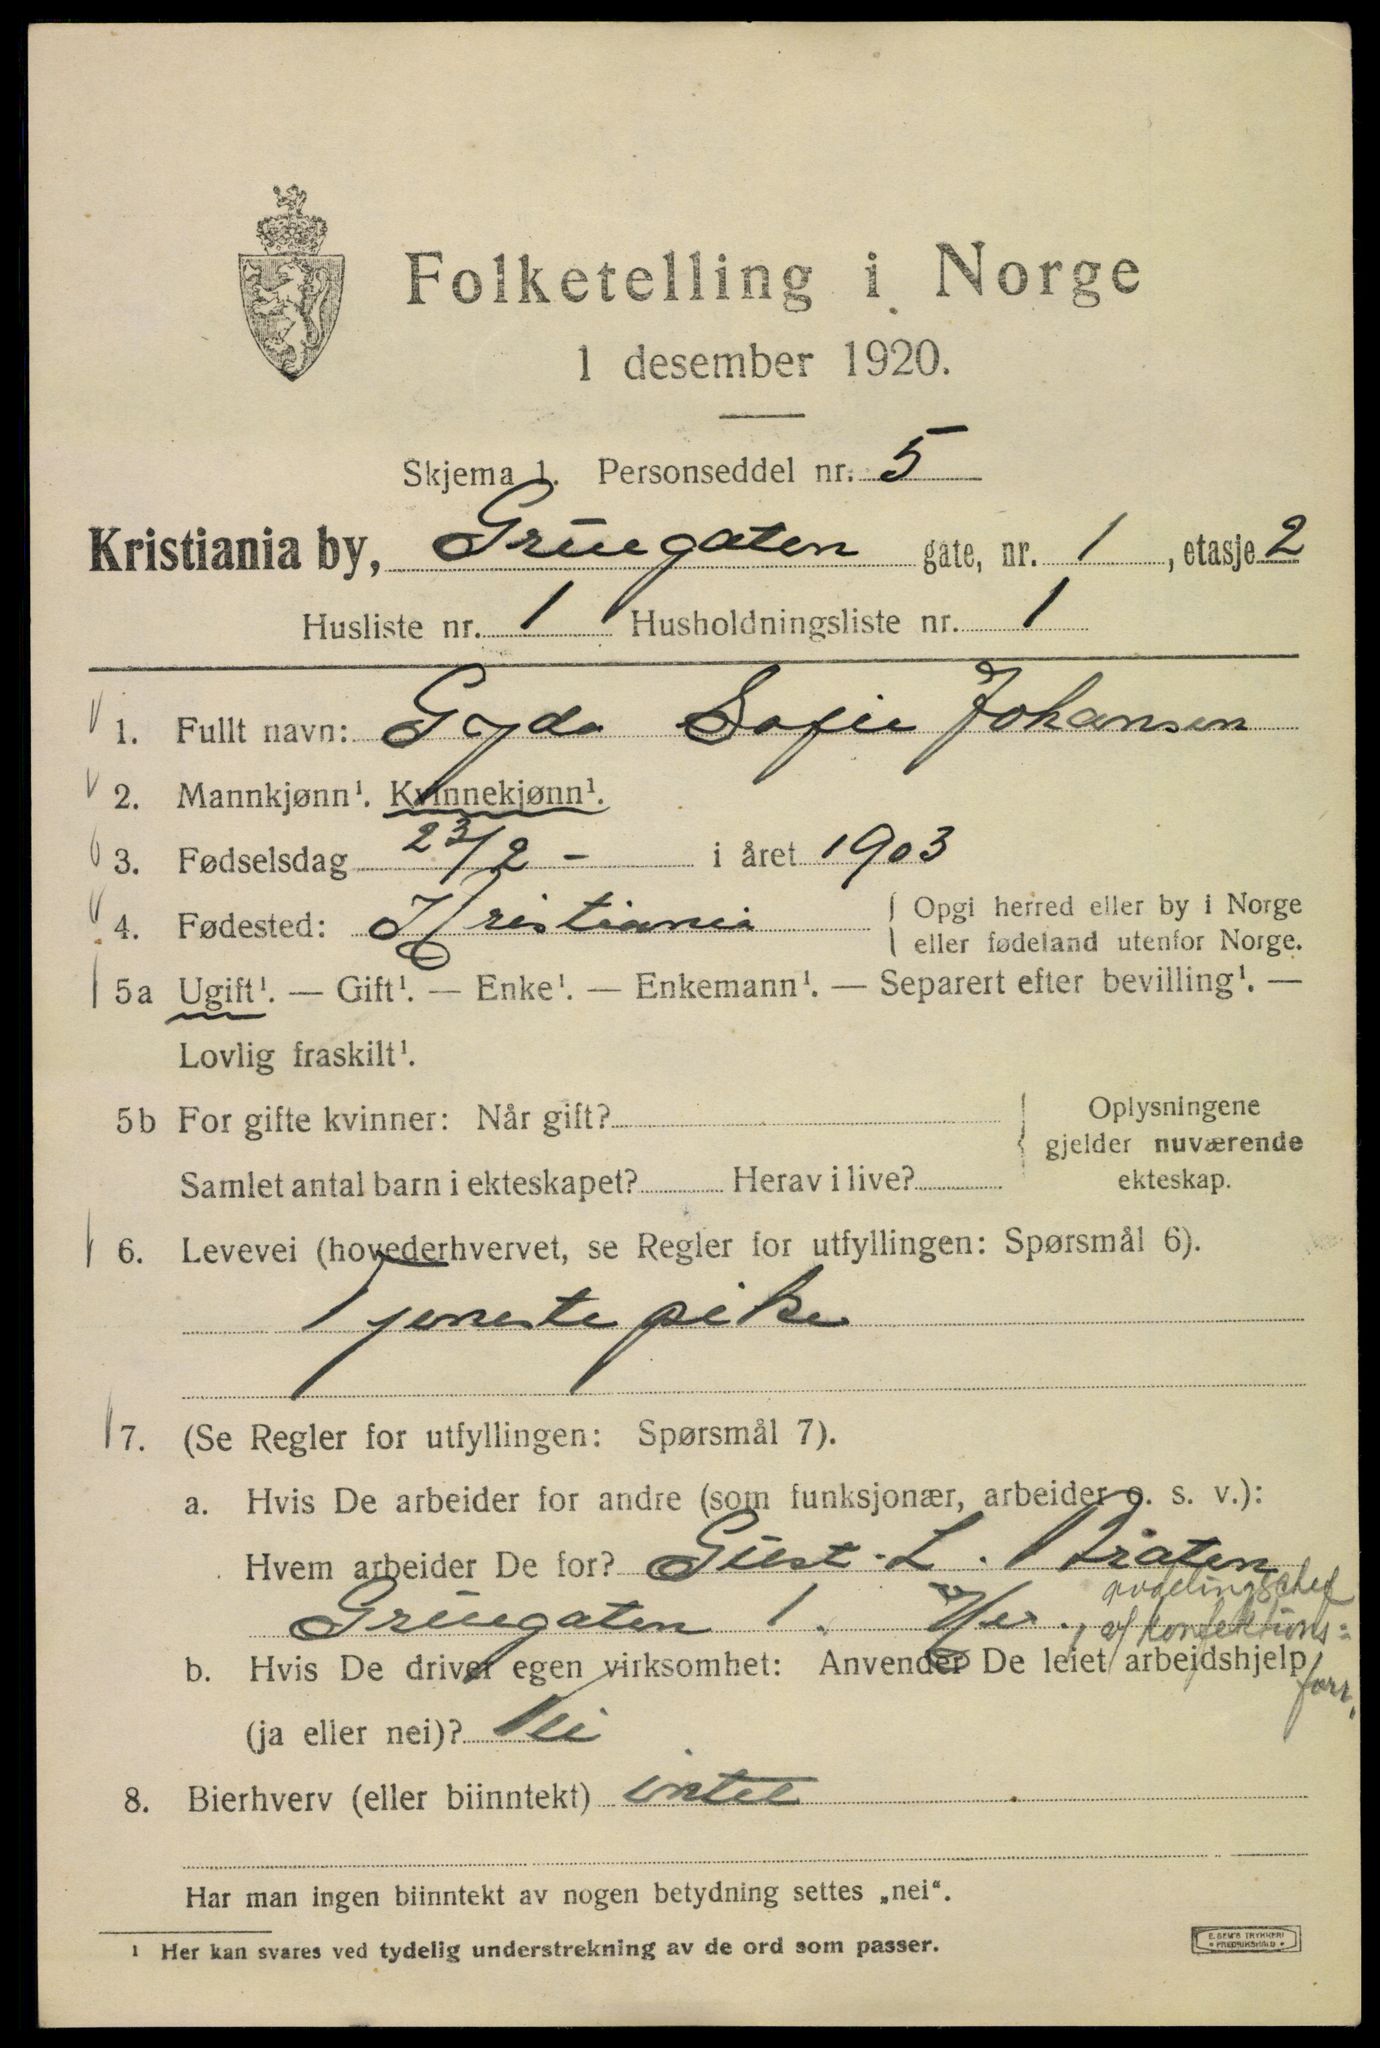 Folketelling i Norge
1 desember 1920.
Skjema 1. Personseddel nr. 5
Kristiania by, Grüngaten gate, nr. 1, etasje 2
Husliste nr. 1 Husholdningsliste nr. 1
1. Fullt navn: Gyda Sofie Johansen
2. Mannkjønn¹. Kvinnekjønn¹.
3. Fødselsdag 23/2 - i året 1903
4. Fødested: Kristiania { Opgi herred eller by i Norge
eller fødeland utenfor Norge.
5a Ugift¹. — Gift¹. — Enke¹. — Enkemann¹. — Separert efter bevilling¹. —
Lovlig fraskilt¹.
5b For gifte kvinner: Når gift?
Samlet antal barn i ekteskapet? Herav i live?
{ Oplysningene
gjelder nuværende
ekteskap.
6. Levevei (hovederhvervet, se Regler for utfyllingen: Spørsmål 6).
Tjenestepike
7. (Se Regler for utfyllingen: Spørsmål 7).
a. Hvis De arbeider for andre (som funksjonær, arbeider o. s. v.):
Hvem arbeider De for? Gust. L. Bråten
Grüngaten 1. avdelingschef
af konfektions=
forr.
b. Hvis De driver egen virksomhet: Anvender De leiet arbeidshjelp
(ja eller nei)? Nei
8. Bierhverv (eller biinntekt) intet
Har man ingen biinntekt av nogen betydning settes „nei“.
¹ Her kan svares ved tydelig understrekning av de ord som passer.
E. SEM'S TRYKKERI
• FREDRIKSHALD •